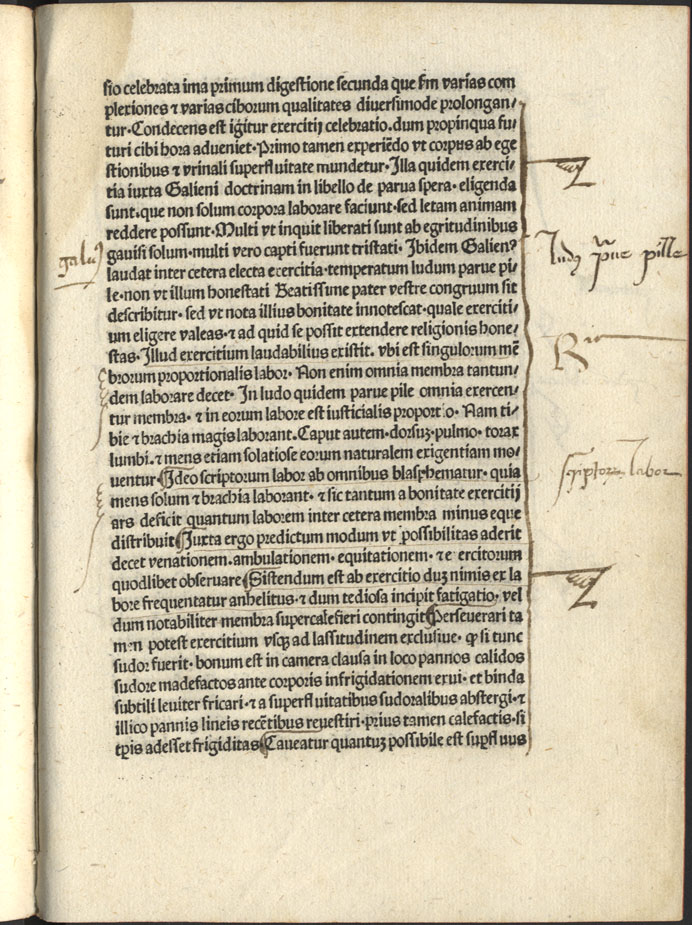 sio celebrata ima primum digestione secunda que ẜm varias com
plexiones ⁊ varias ciborum qualitates diuersimode prolongan/
tur·Condecens est igitur exercitij celebratio.dum propinqua fu/
turi cibi hora adueniet·Primo tamen experiēdo vt corpus ab ege
stionibus ⁊ vrinali superfluitate mundetur·Illa quidem exerci/
tia iuxta Galieni doctrinam in libello de parua spera· eligenda
sunt.que non solum corpora laborare faciunt·sed letam animam
reddere possunt·Multi vt inquit liberati sunt ab egritudinibus
gauisi solum·multi vero capti fuerunt tristati· Ibidem Galienꝰ
laudat inter cetera electa exercitia·temperatum ludum parue pi/
le·non vt illum honestati Beatissime pater vestre congruum sit
describitur· sed vt nota illius bonitate innotescat·quale exerciti/
um eligere valeas·⁊ ad quid se possit extendere religionis hone/
stas·Illud exercitium laudabilius existit. vbi est singulorum mē
brorum proportionalis labor· Non enim omnia membra tantun/
dem laborare decet· In ludo quidem parue pile omnia exercen/
tur membra· ⁊ in eorum labore est iusticialis proportio· Nam ti/
bie ⁊ brachia magis laborant.Caput autem·dorsuꝫ·pulmo·torax
lumbi.⁊ mens etiam solatiose eorum naturalem exigentiam mo/
uentur·Ideo scriptorum labor ab omnibus blasphematur· quia
mens solum ⁊ brachia laborant· ⁊ sic tantum a bonitate exercitij
ars deficit quantum laborem inter cetera membra minus eque
distribuit Iuxta ergo predictum modum vt possibilitas aderit
decet venationem.ambulationem·equitationem·⁊ e ercitorum
quodlibet obseruare Sistendum est ab exercitio duꝫ nimis ex la
bore frequentatur anhelitus·⁊ dum tediosa incipit fatigatio· vel
dum notabiliter membra supercalefieri contingit Perseuerari ta
men potest exercitium vsqꝫ ad lassitudinem exclusiue· ꝙ si tunc
sudor fuerit· bonum est in camera clausa in loco pannos calidos
sudore madefactos ante corporis infrigidationem exui· et binda
subtili leuiter fricari·⁊ a superfluitatibus sudoralibus abstergi·⁊
illico pannis lineis recētibus reuestiri·prius tamen calefactis·si
tꝑis adesset frigiditas Caueatur quantuꝫ possibile est suꝑfluus
galiꝰ
ludꝰ parue pille
scriptorum labor